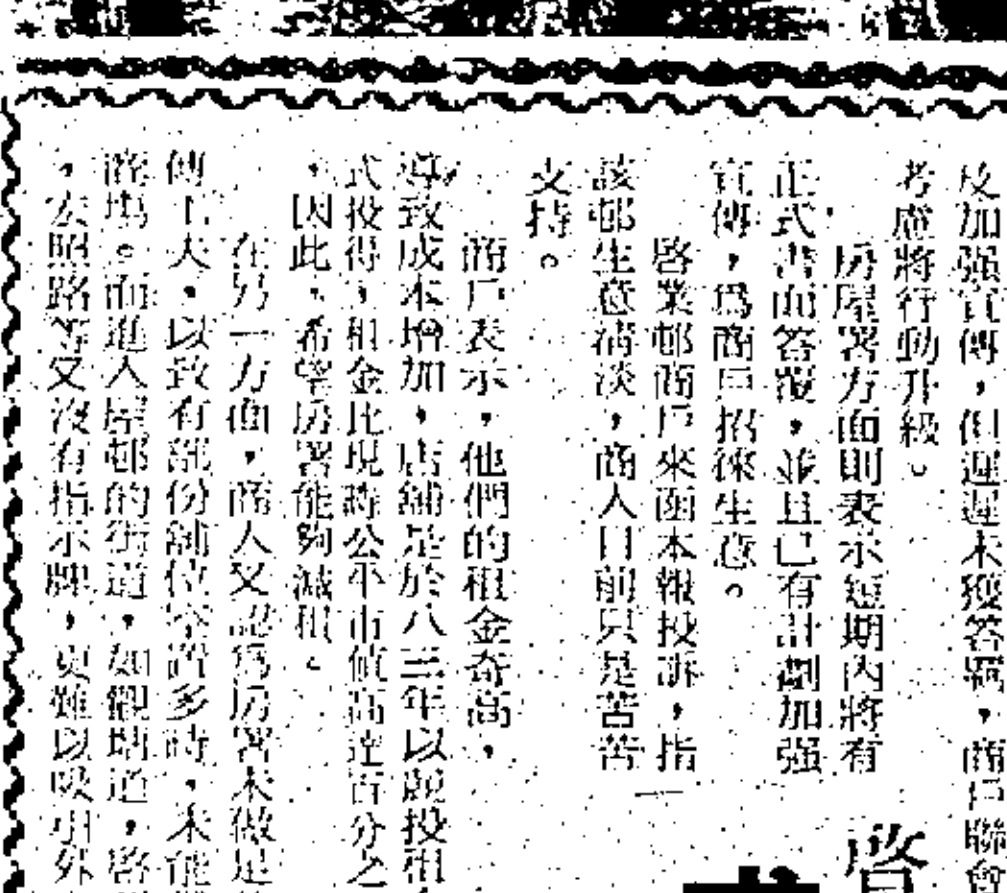 及加强宣傳，但遲遲未獲答覆，商戶聯會
考慮將行動升級。
房屋署方面則表示短期內將有
正式書面答覆，並且已有計劃加强
宣傳，爲商戶招徠生意。
啓業邨商戶來函本報投訴，指
該邨生意淸淡，商人目前只是苦苦
支持。
商戶表示，他們的租金奇高，
導致成本增加，店舖是於八三年以競投租
式投得，租金比現時公平市值高達百分之
，因此，希望房署能夠減租。
在另一方面，商人又認爲房署未做足
傳工夫，以致有部份舖位空置多時，未能
商塲。而進入屋邨的街道，如觀塘道，啓
，宏照路等又沒有指示牌，更難以吸引外
啓